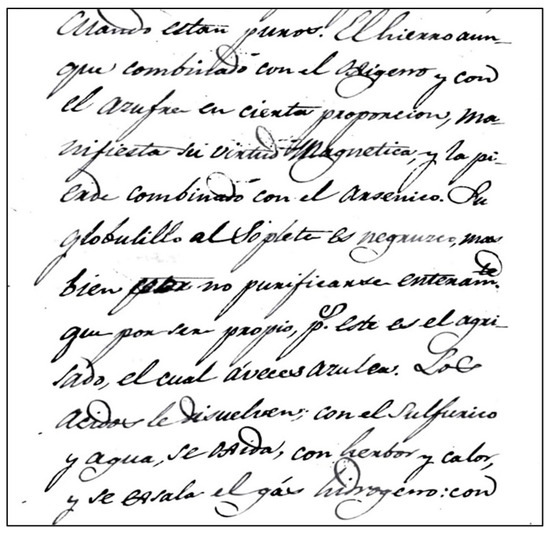 Cuando estan puros. El hierro aun-
que combinado con el oxigeno y con
el azufre en cierta proporcion, ma-
nifiesta su virtud Magnetica, y la pi-
erde combinado con el arsenico. Su
globulillo al Soplete es negruzco, mas
bien por no purificarse enteramte
que por ser propio, ps. este es el agri-
sado, el cual áveces azulea. Los
acidos le disuelven; con el Sulfurico
y agua, se oxida, con herbor y calor,
y se exsala el gás hidrogeno: con